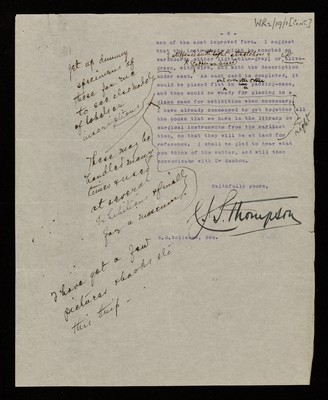 WA/HMM/
- 2 -
men of the most improved form. I suggest
that the instruments might be mounted on
cardboard, either light slate-gray, or olive-
green, with wire, and with the description
under each. As each card is completed, it
could be placed flat in the packing-case,
and then would be ready for placing in a
glass case for exhibition when necessary.
I have already commenced to get together all
the books that we have in the library on
surgical instruments from the earliest
time, so that they will be at hand for
reference. I shall be glad to hear what
you think of the matter, and will then
communicate with Dr
Faithfully yours,
C J S Thompson
H.S. Wellcome, Esq.
get up dummy
specimens of
these for me
to see also models
of labels or
inscriptions
These may be
handled many
times & used
at several
Exhibitions & finally
for a museum
I have got a few
pictures & books etc
this trip -
right